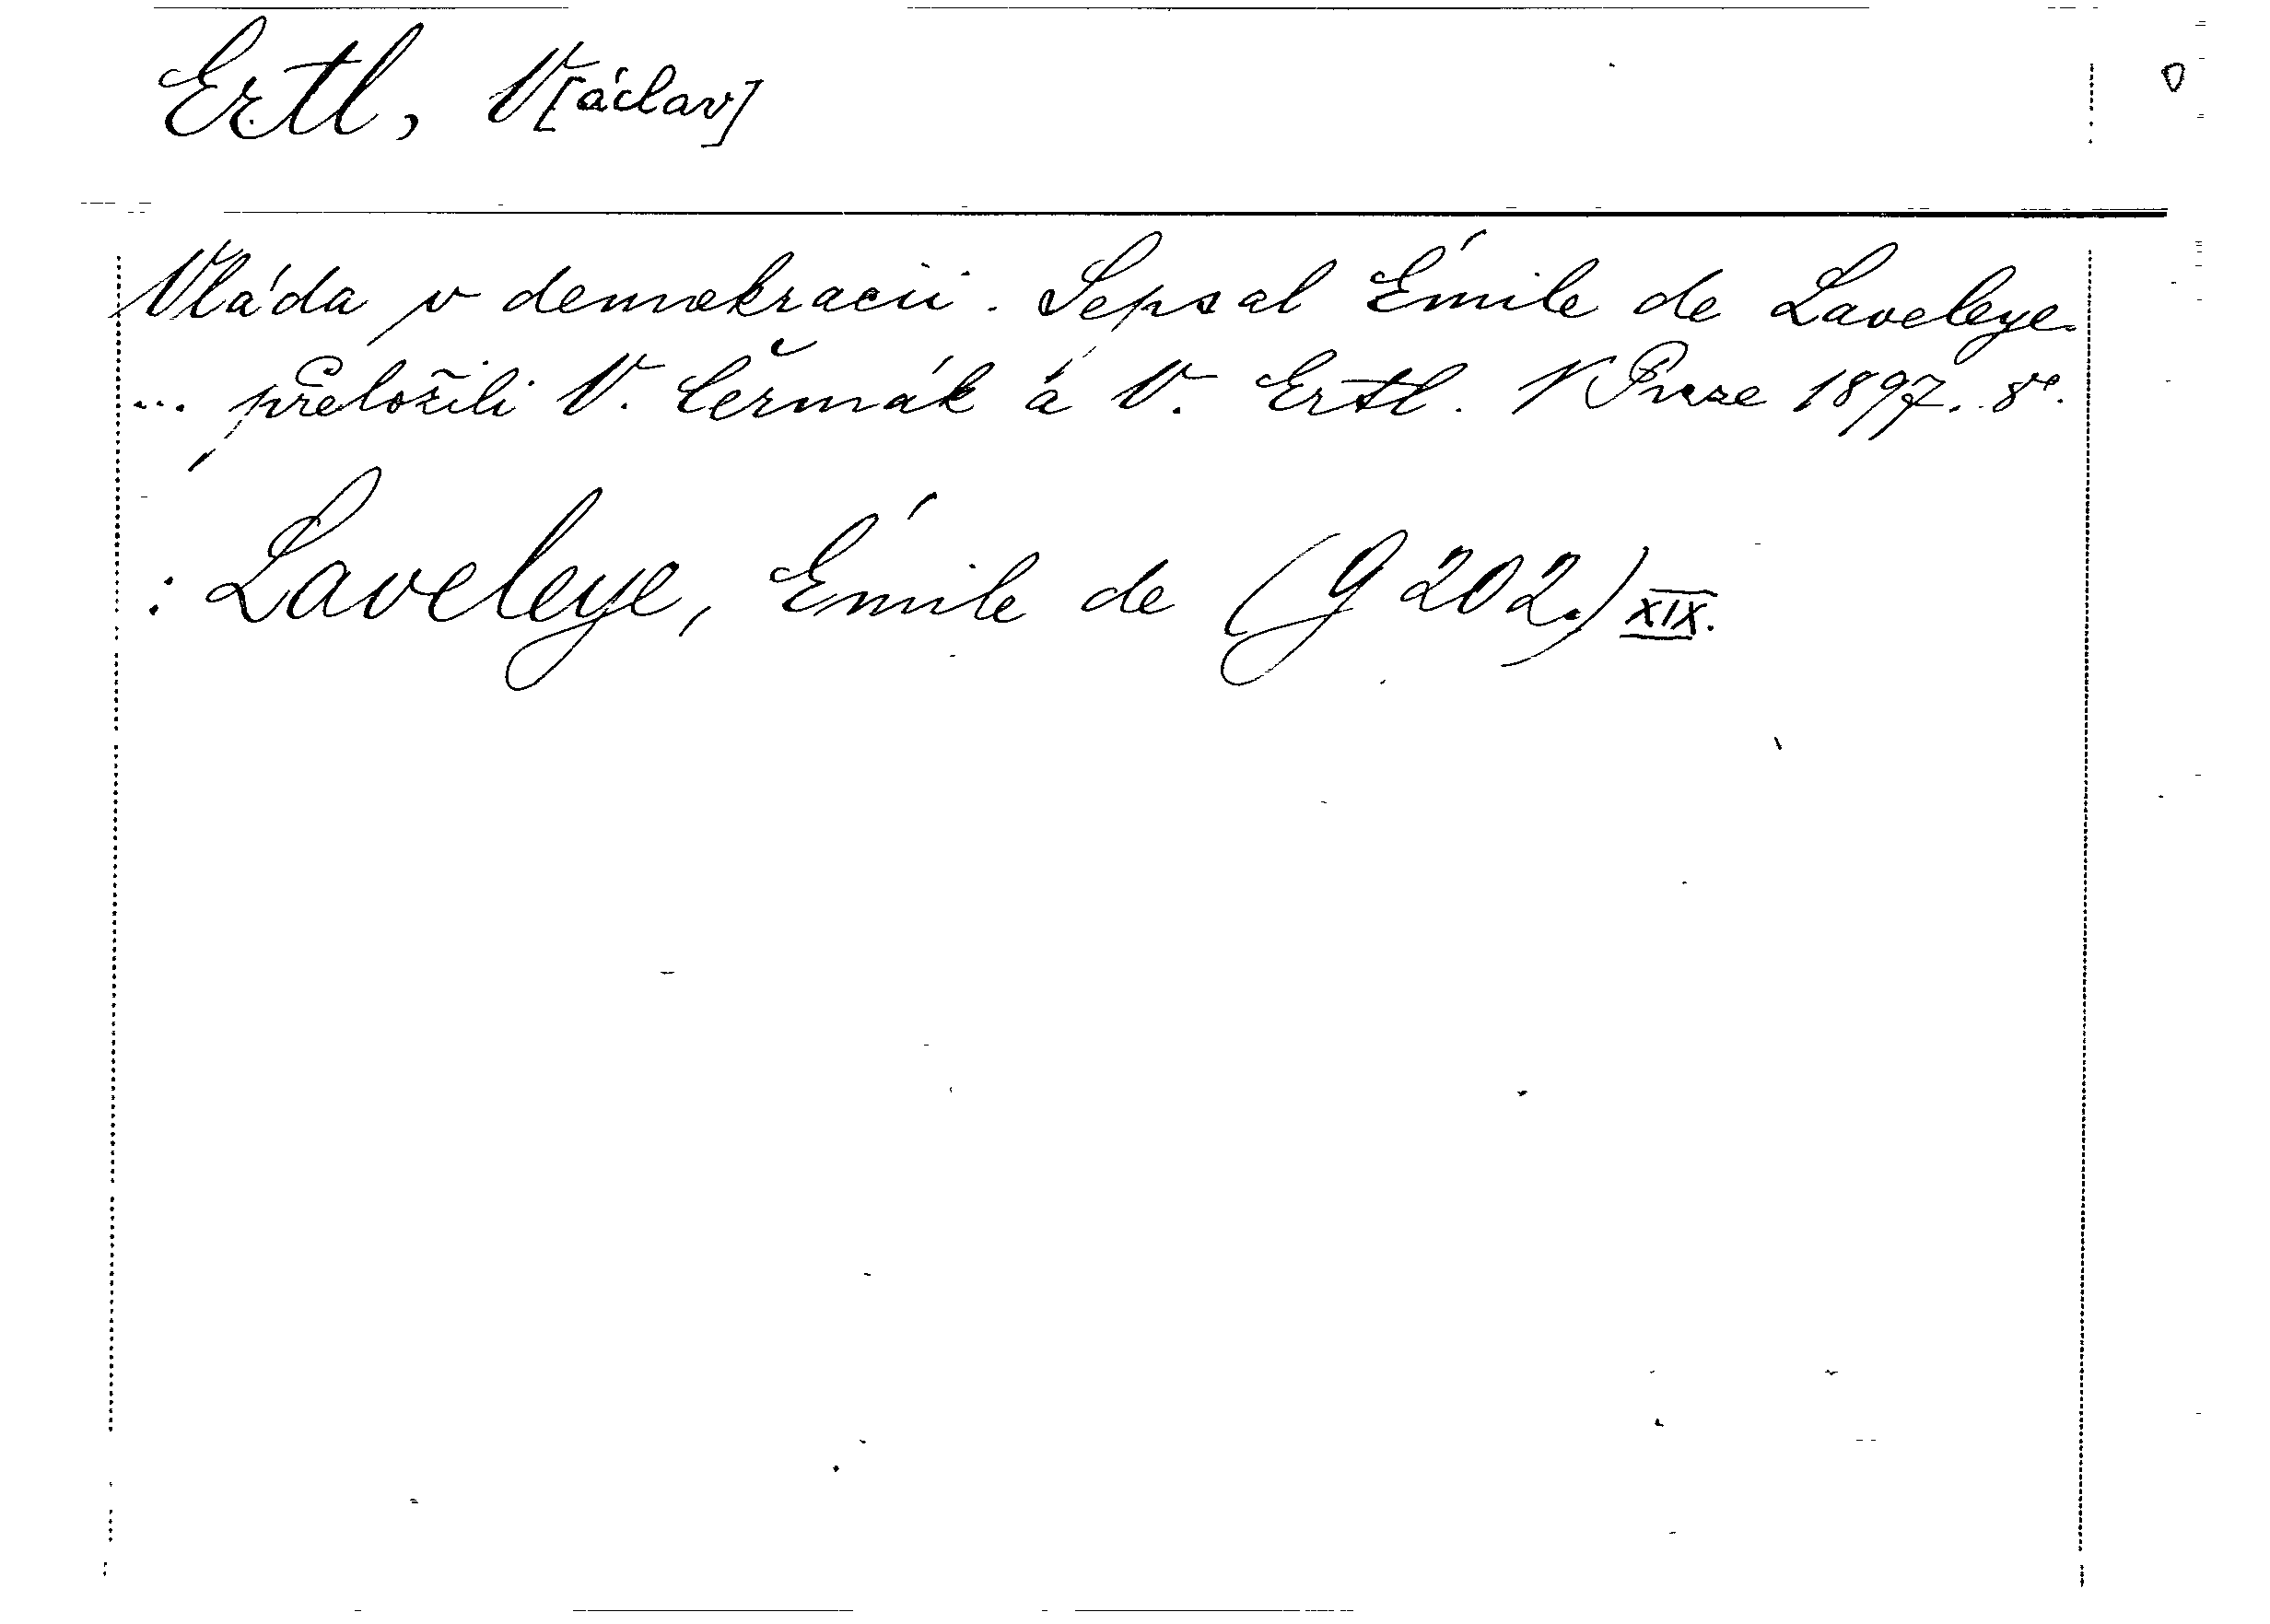 Ertl, V[áclav]
Vláda v demokracii. Sepsal Émile de Laveleye
... přeložili V. Čermák a V. Ertl. V Praze 1897. 8°.
: Laveleye, Émile de (G 202.) XIX.